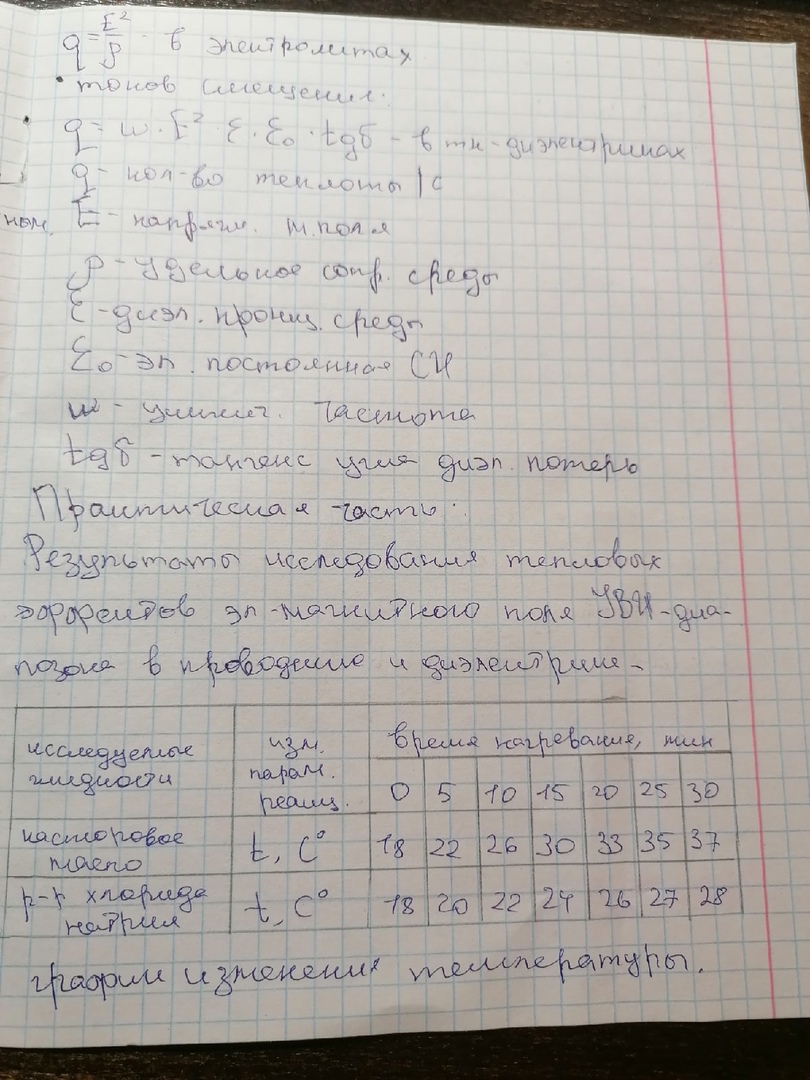 q = E²/ρ - в электролитах
• токов смещения.
q = w · E² · ε · ε₀ · tgδ - в тк-диэлектриках
q - кол-во теплоты / с
E - напряж. эл. поля
ρ - удельное сопр. среды
ε - диэл. прониц. среды
ε₀ - эл. постоянная СИ
w - циклич. частота
tgδ - тангенс угла диэл. потерь
Практическая часть:
Результаты исследования тепловых
эффектов эл-магнитного поля УВЧ-диа-
позона в проводнике и диэлектрике -
исследуемые жидкости | изм. парам. реакц. | время нагревания, мин
0 5 10 15 20 25 30
касторовое масло | t, C° | 18 22 26 30 33 35 37
р-р хлорида натрия | t, C° | 18 20 22 24 26 27 28
график изменения температуры.